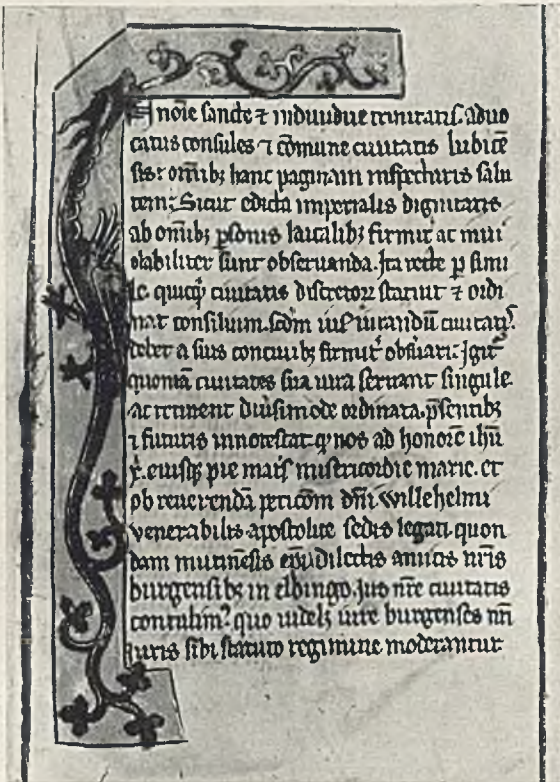 In noīe sancte ⁊ indiuidue trinitatis. aduo
catus consules ⁊ cōmune ciuitatis lubicē
sis omībꝫ hanc paginam inspecturis salu
tem. Sicut edicta imperialis dignitatis
ab omībꝫ ꝑsonis laicalibꝫ firmit͛ ac inui
olabiliter sunt obseruanda. Ita recte ꝑ simi
le. quicqͥd ciuitatis discretoꝝ statuit ⁊ ordi
nat consilium. scdm ius iurandū ciuitatis.
debet a suis conciuibꝫ firmit͛ obs͛uari. Igit͛
quoniā ciuitates sua iura seruant singule.
ac retinent diu͛simode ordinata. p̄sentibꝫ
⁊ futuris innotescat. qͥ nos ad honorē ihū
x̄. eiusqꝫ pie mat͛s misericordie marie. et
ob reuerendā peticōm dn̄i willehelmi
venerabilis apostolice sedis legati. quon
dam mutinēsis ep̄i. dilectis amicis nr̄is
burgensibꝫ in elbingo. Jus nr̄e ciuitatis
contulimꝰ. quo uidelꝫ iure burgenses nr̄i
iuris sibi statuto regimine moderantur